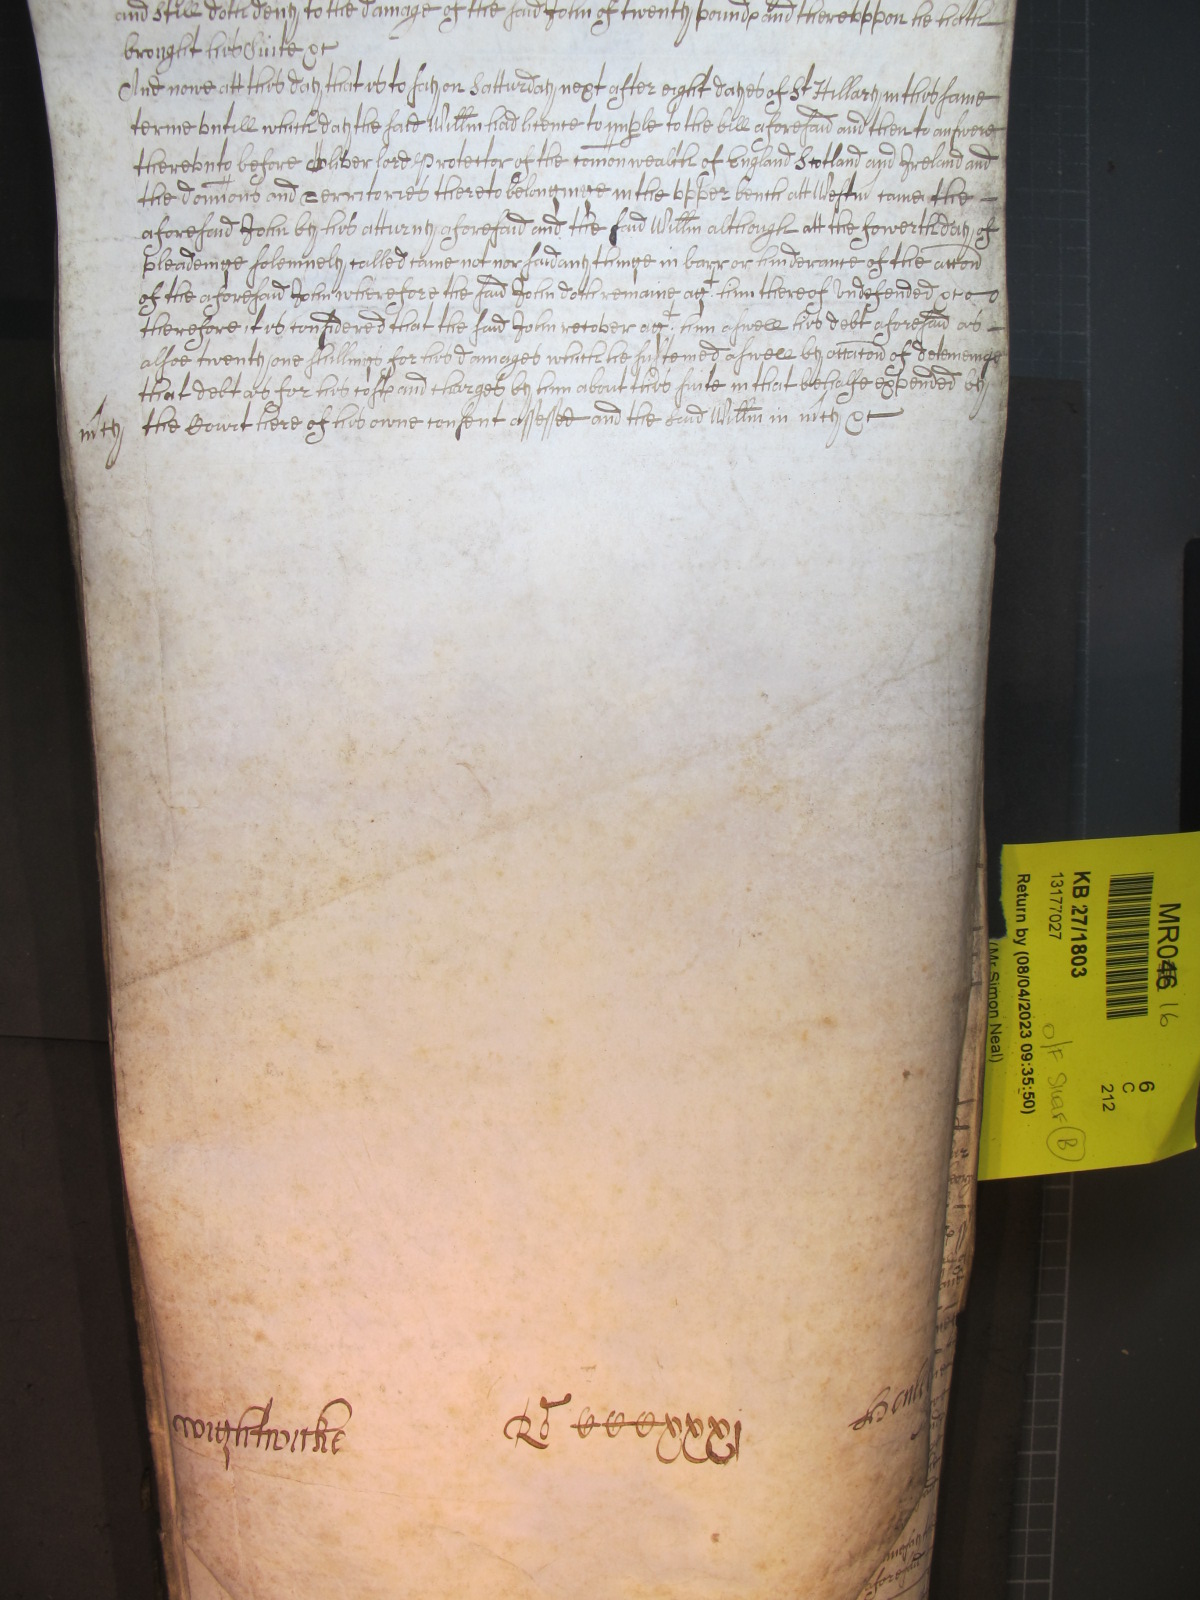 and still doth deny to the damage of the said John of twenty pounds and thereuppon he hath
brought his suite &c
And nowe att this day that is to say on Satturday next after eight dayes of St Hillary in this same
terme untill which day the said Willm had licence to imple to the bill aforesaid and then to answere
thereunto before Oliver lord Protector of the comonwealth of England Scotland and Ireland and
the domions and Territorries thereto belonginge in the upper bench att Westm came the
aforesaid John by his atturny aforesaid and the said Willm although att the fowerth day of
pleadeinge solemnely called came not nor said any thinge in barr or hinderance of the accon
of the aforesaid John wherefore the said John doth remaine agt him thereof undefended &c
therefore it is considered that the said John recover agt him aswell his debt aforesaid as
alsoe twenty one shillings for his damages which he susteined aswell by occacon of deteineinge
that debt as for his costs and charges by him about this suite in that behalfe expended by
mcy the Court here of his owne consent assessed and the said Willm in mcy &c
Wightwicke
Ro CCCCxxxj
Henley
MR046 16
KB 27/1803
13177027
Return by (08/04/2023 09:35:50)
(Mr Simon Neal)
6
C
212
O/F
B